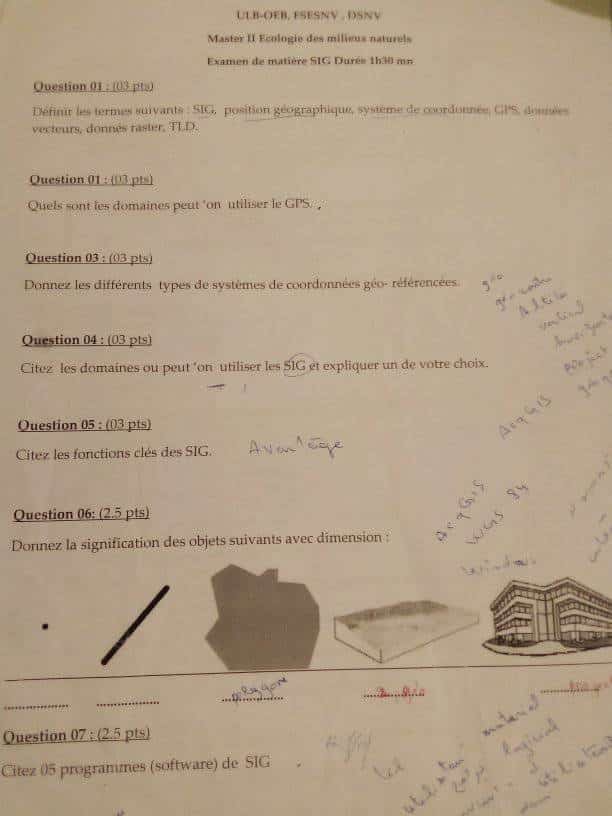 ULB-OEB, FSESNV , DSNV
Master II Ecologie des milieux naturels
Examen de matière SIG Durée 1h30 mn
Question 01 : (03 pts)
Définir les termes suivants : SIG, position géographique, système de coordonnée, GPS, données
vecteurs, donnés raster, TLD.
Question 01 : (03 pts)
Quels sont les domaines peut 'on utiliser le GPS. .
Question 03 : (03 pts)
Donnez les différents types de systèmes de coordonnées géo- référencées.
Question 04 : (03 pts)
Citez les domaines ou peut 'on utiliser les SIG et expliquer un de votre choix.
ArqGIS
Question 05 : (03 pts)
Citez les fonctions clés des SIG.
Avantage
Question 06: (2.5 pts)
ArqGIS
WGS 84
Donnez la signification des objets suivants avec dimension :
Window
.................. ................. polygone
Question 07 : (2.5 pts)
materiel
logiciel
Citez 05 programmes (software) de SIG .